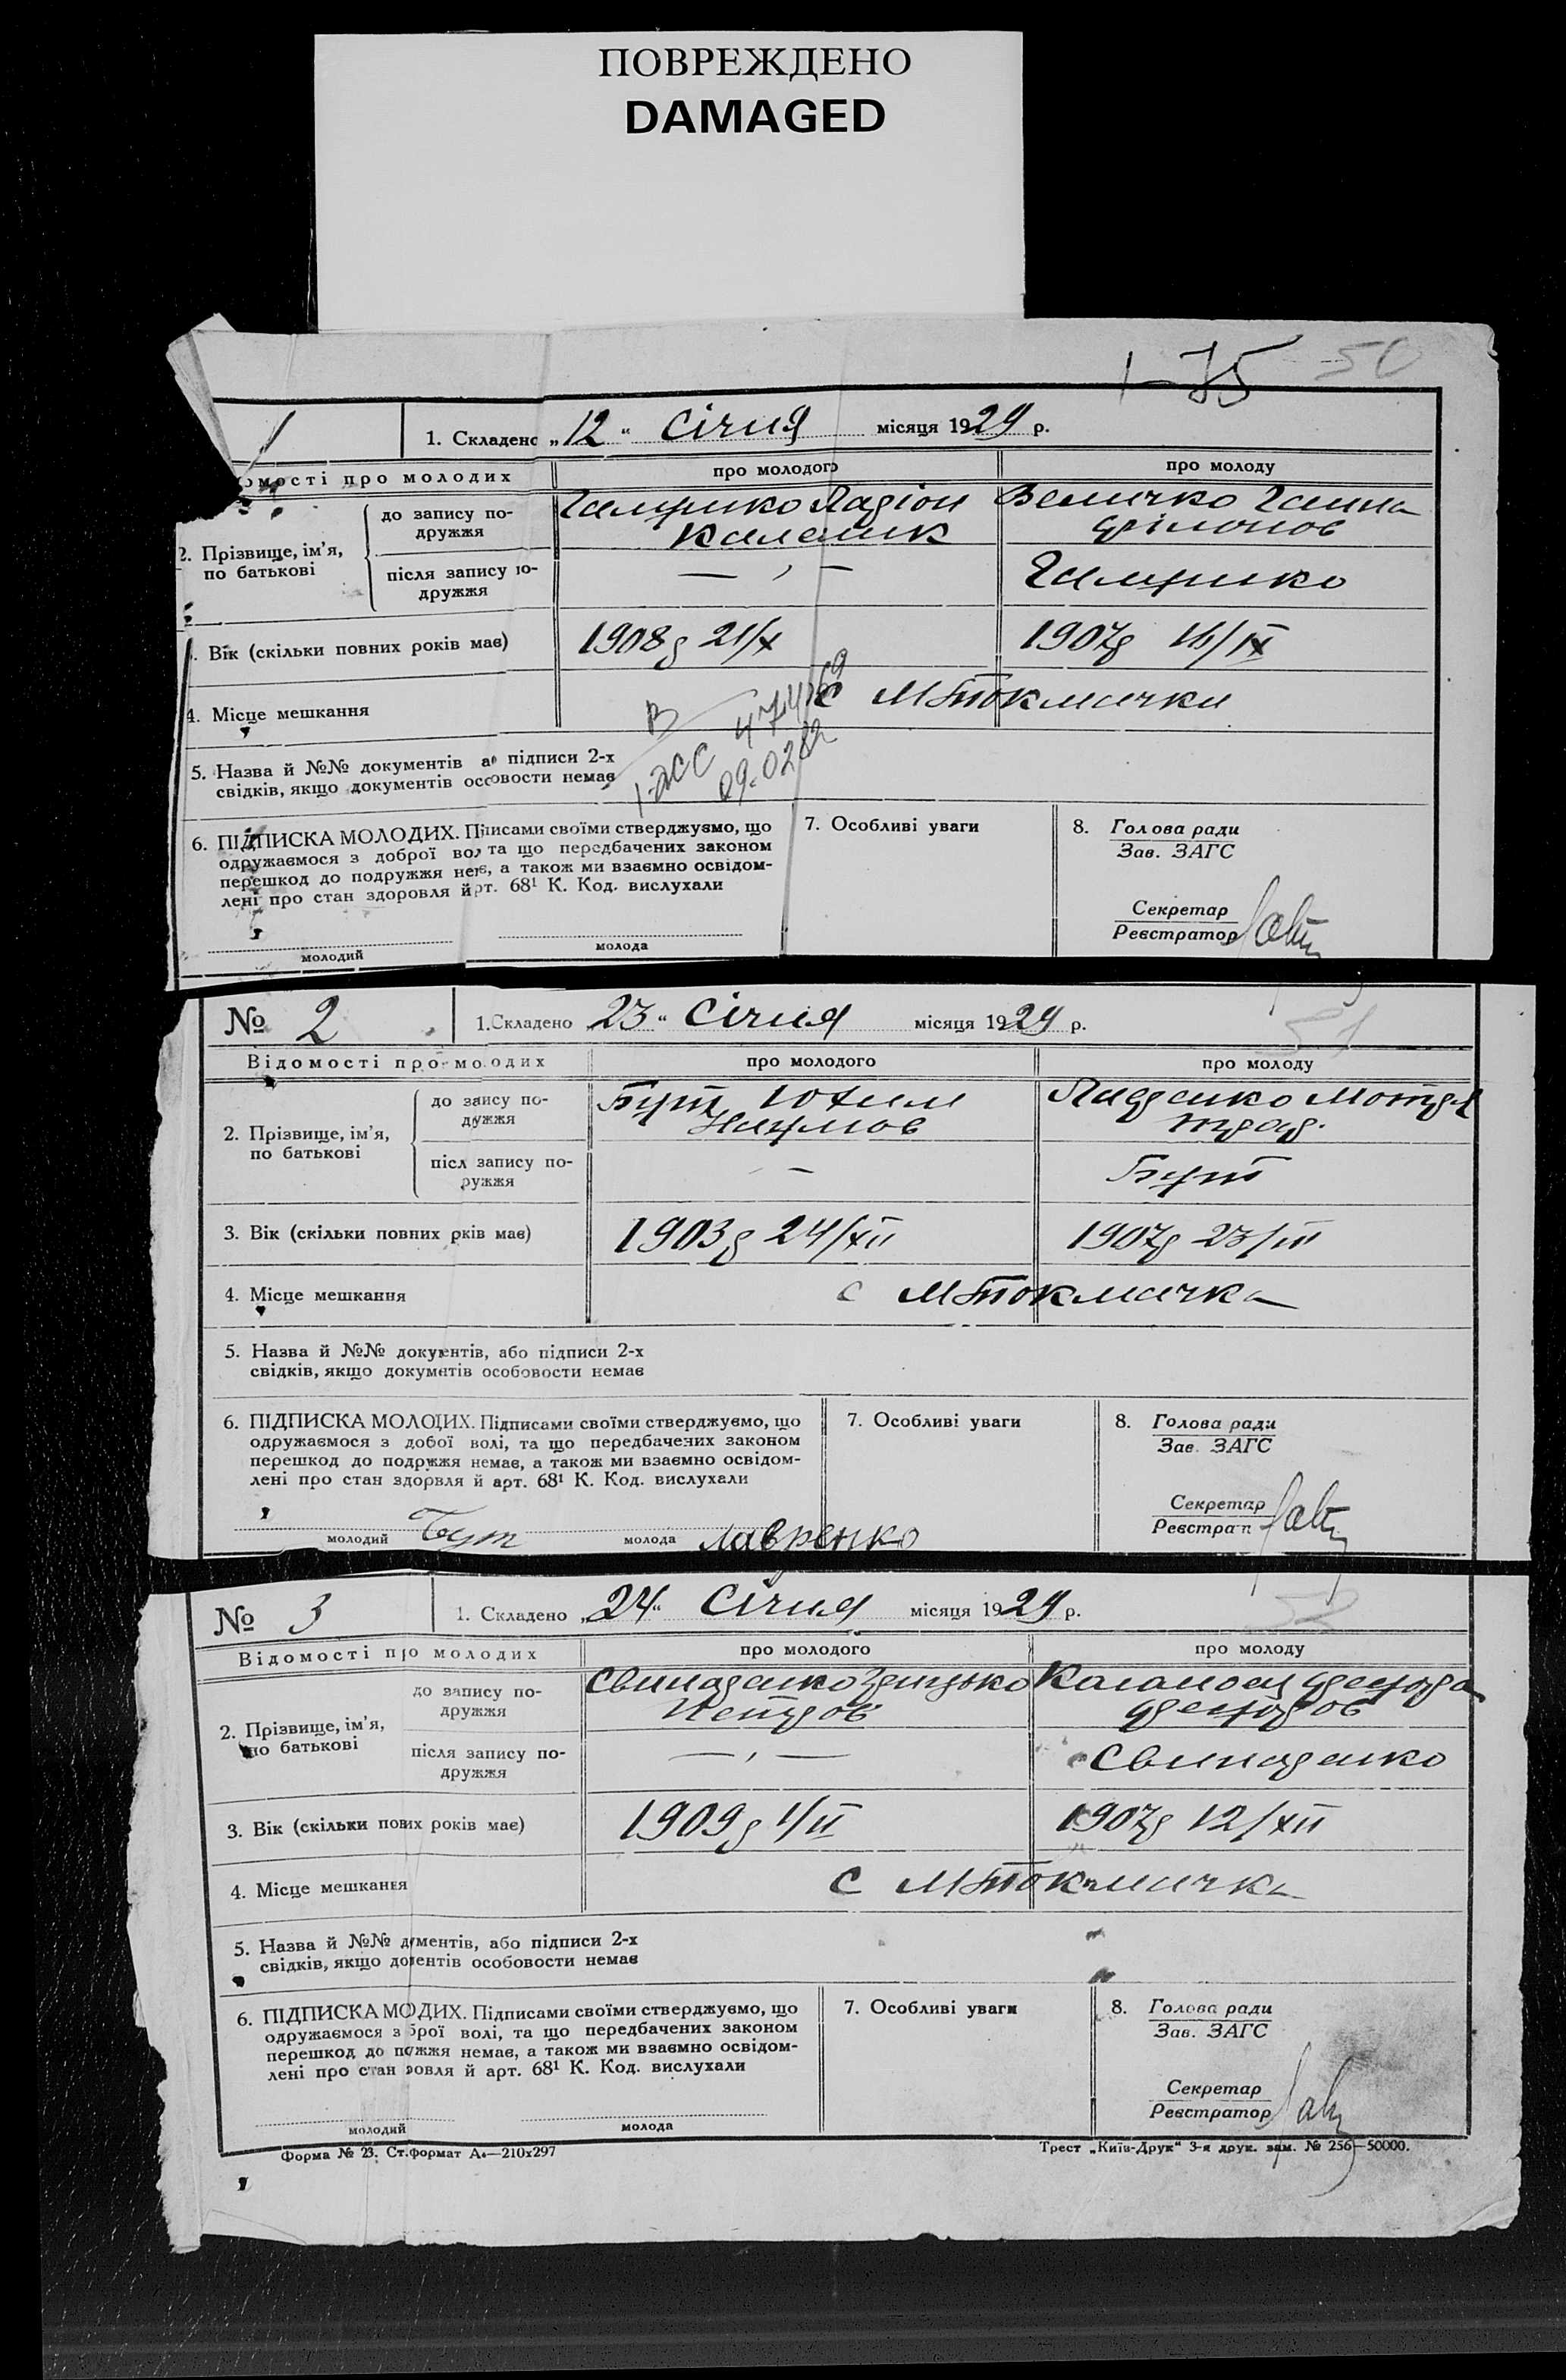 ПОВРЕЖДЕНО
DAMAGED
1—75 50
1 1. Складено „12“ Січня місяця 1929 р.
омості про молодих про молодого про молоду
2. Прізвище, ім'я, по батькові
до запису подружжя Радіон Величко Ганна
після запису подружжя — „ —
Вік (скільки повних років має) 1908р 21/X 1907р 16/IX
4. Місце мешкання с М Токмачки
5. Назва й №№ документів підписи 2-х
свідків, якщо документів немає
6. ПІДПИСКА МОЛОДИХ. Підписами своїми стверджуємо, що
одружаємося з доброї волі та що передбачених законом
перешкод до подружжя немає, а також ми взаємно освідом-
лені про стан здоровля й арт. 68¹ К. Код. вислухали
молодий молода
7. Особливі уваги
8. Голова ради
Зав. ЗАГС
Секретар
Реєстратор
№ 2 1. Складено 23“ Січня місяця 1929 р.
Відомості про молодих про молодого про молоду
2. Прізвище, ім'я, по батькові
до запису подружжя Бут Юхим Наумов Мотря
післ запису подружжя — Бут
3. Вік (скільки повних років має) 1903р 24/XII 1907р 23/III
4. Місце мешкання с М Токмачка
5. Назва й №№ документів, або підписи 2-х
свідків, якщо документів особовости немає
6. ПІДПИСКА МОЛОДИХ. Підписами своїми стверджуємо, що
одружаємося з доброї волі, та що передбачених законом
перешкод до подружжя немає, а також ми взаємно освідом-
лені про стан здоровля й арт. 68¹ К. Код. вислухали
молодий Бут молода Лавренко
7. Особливі уваги
8. Голова ради
Зав. ЗАГС
Секретар
№ 3 1. Складено „24“ Січня місяця 1929 р.
Відомості про молодих про молодого про молоду
2. Прізвище, ім'я, по батькові
до запису подружжя Грицько Петров
після запису подружжя — „ —
3. Вік (скільки повних років має) 1909р 1/II 1907р 12/XII
4. Місце мешкання с М Токмачка
5. Назва й №№ документів, або підписи 2-х
свідків, якщо документів особовости немає
6. ПІДПИСКА МОЛОДИХ. Підписами своїми стверджуємо, що
одружаємося з доброї волі, та що передбачених законом
перешкод до подружжя немає, а також ми взаємно освідом-
лені про стан здоровля й арт. 68¹ К. Код. вислухали
молодий молода
7. Особливі уваги
8. Голова ради
Зав. ЗАГС
Секретар
Реєстратор
Форма № 23. Ст.формат А₄—210x297 Трест „Київ-Друк“ 3-я друк. зам. № 256—50000.